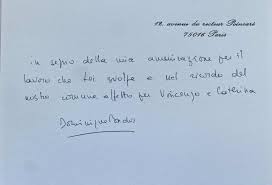 12, avenue du recteur Poincaré
75016 Paris
in segno della mia ammirazione per il
lavoro che Lei svolge e nel ricordo del
nostro comune affetto per Vincenzo e Caterina
Dominique